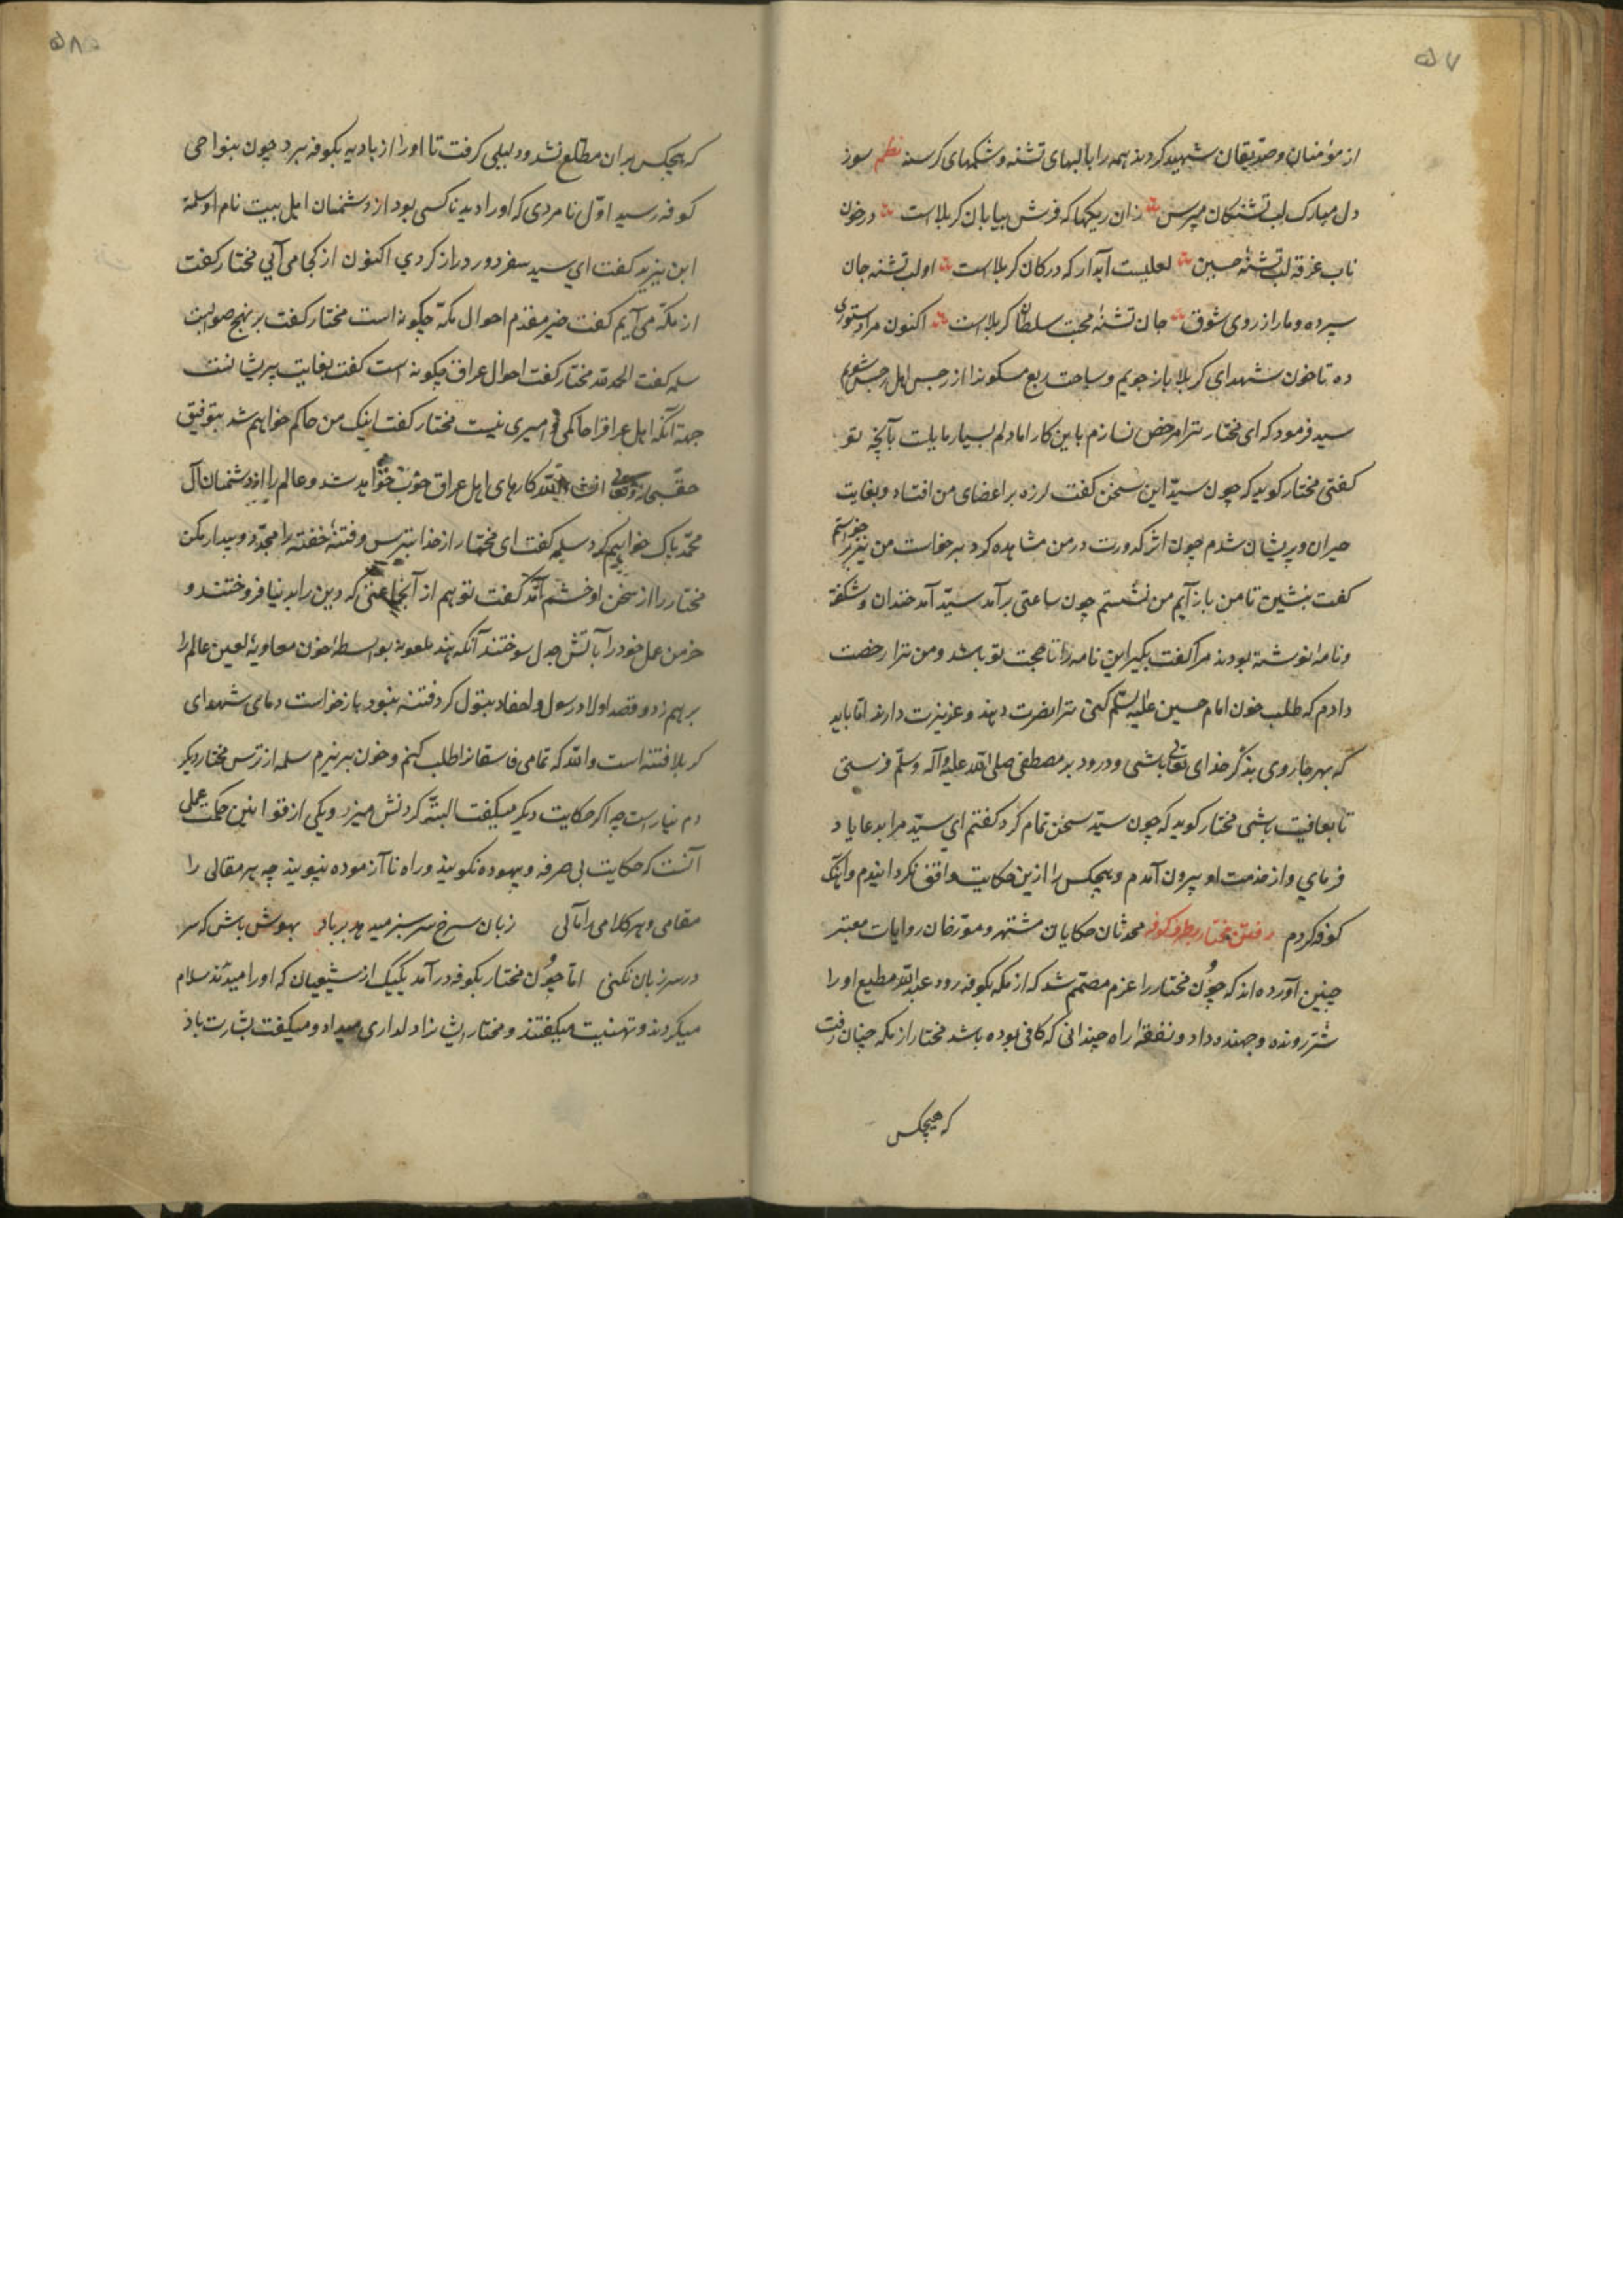 ۵۷
از مؤمنان و صدیقان شهید کردند همه را با لبهای تشنه و شکمهای کرسنه نظم سوز
دل مبارک لب تشنکان مپرس زان ریکها که فرش بیابان کربلا است در خون
ناب غرقه لب تشنهٔ حسین لعلیست آبدار که در کان کربلا است او لب تشنه جان
سپرده و ما را از روی شوق جان تشنهٔ محبت سلطان کربلا است اکنون مرا دستوری
ده تا خون شهدای کربلا باز جویم و ساحت ربع مسکون را از رجس اهل رجس شویم
سید فرمود که ای مختار ترا مرخص نسازم باین کار اما دلم بسیار مایلست بآنچه تو
کفتی مختار کوید که چون سید این سخن کفت لرزه بر اعضای من افتاد و بغایت
حیران و پریشان شدم چون اثر کدورت در من مشاهده کرد برخاست من نیز برخواستم
کفت بنشین تا من باز آیم من نشستم چون ساعتی برآمد سید آمد خندان و شکفته
و نامه نوشته بودند مرا کفت بکیر این نامه را تا حجت تو باشد و من ترا رخصت
دادم که طلب خون امام حسین علیه السلم کنی ترا نصرت دهند و عزیزت دارند اما باید
که بهر جا روی بذکر خدای تعالی باشی و درود بر مصطفی صلی الله علیه و آله و سلم فرستی
تا بعافیت باشی مختار کوید که چون سید سخن تمام کرد کفتم ای سید مرا بدعا یاد
فرمای و از خدمت او بیرون آمدم و هیچکس را ازین حکایت واقف نکردانیدم و آهنک
کوفه کردم رفتن مختار بطرف کوفه محدثان حکایان مشتهر و مورخان روایات معتبر
چنین آورده اند که چون مختار را عزم مصمم شد که از مکه بکوفه رود عبدالله مطیع او را
شتر رونده و جهنده داد و نفقهٔ راه چندانی که کافی بوده باشد مختار از مکه چنان رفت
که هیچکس
۵۸۵
که هیچکس بران مطلع نشد و دلیلی کرفت تا او را از بادیه بکوفه برد چون بنواحی
کوفه رسید اول نامردی که او را دید ناکسی بود از دشمنان اهل بیت نام او سلمة
ابن یزید کفت ای سید سفر دور دراز کردی اکنون از کجا می آیی مختار کفت
از مکه می آیم کفت خیر مقدم احوال مکه چکونه است مختار کفت بر نهج صوابست
سلمه کفت الحمد لله مختار کفت احوال عراق چکونه است کفت بغایت پریشانست
جهة آنکه اهل عراق را حاکمی و امیری نیست مختار کفت اینک من حاکم خواهم شد بتوفیق
حق سبحانه و تعالی انشاء الله کارهای اهل عراق خوب خواهد شد و عالم را از دشمنان آل
محمد پاک خواهیم کرد سلمه کفت ای مختار از خدا بترس و فتنهٔ خفته را مجدد بیدار مکن
مختار را از سخن او خشم آمد کفت تو هم از آنجماعتی که دین را بدنیا فروختند و
خرمن عمل خود را بآتش جدل سوختند آنکه هند ملعونه بواسطهٔ خون معاویهٔ لعین عالم را
برهم زد و قصد اولاد رسول و احفاد بتول کرد فتنه نبود باز خواست دمای شهدای
کربلا فتنه است والله که تمامی فاسقانرا طلب کنم و خون بریزم سلمه از ترس مختار دیکر
دم نیارست چه اکر حکایت دیکر میکفت البته کردنش میزد و یکی از قوانین حکمت عملی
آنست که حکایت بی صرفه و بیهوده نکویند و راه ناآزموده نپویند چه هر مقالی را
مقامی و هر کلامی را مآلی زبان سرخ سر سبز میدهد بر باد بهوش باش که سر
در سر زبان نکنی اما چون مختار بکوفه در آمد یکیک از شیعیان که او را میدیدند سلام
میکردند و تهنیت میکفتند و مختار ایشانرا دلداری میداد و میکفت بشارت باد